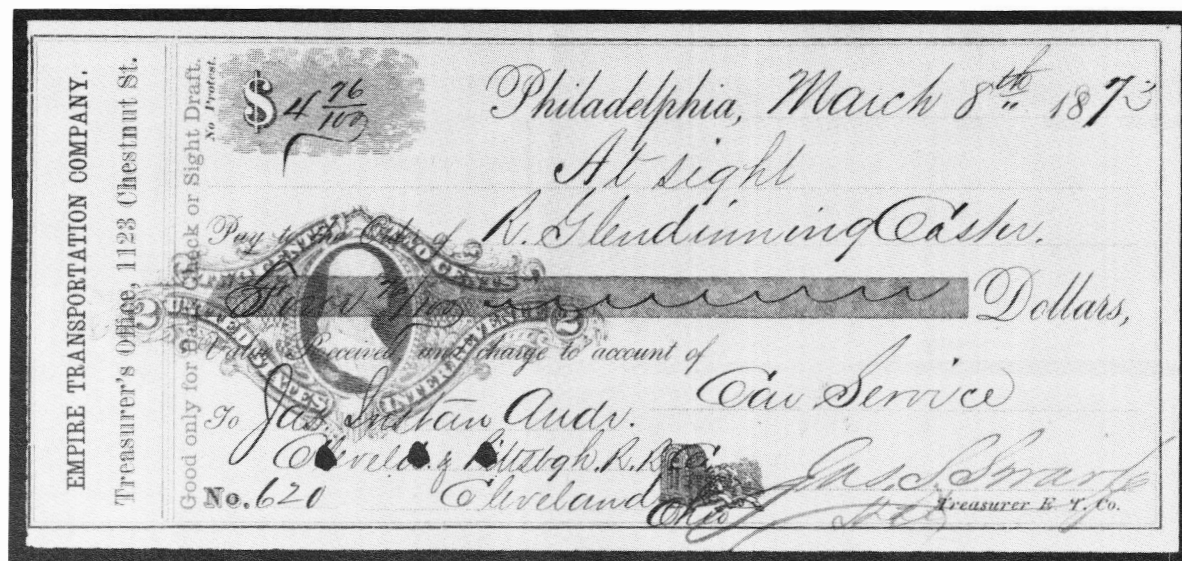 EMPIRE TRANSPORTATION COMPANY.
Treasurer's Office, 1123 Chestnut St.
Good only for Bank Check or Sight Draft.
No Protest.
$ 4 76/100
Philadelphia, March 8th 1873
At sight
Pay to the Order of R. Glendinning Cashr.
Four 76/100 Dollars,
Value Received and charge to account of
Car Service
To Jas. Audr.
Cleveld. & Pittsbgh. R. R. Co.
No. 620 Cleveland
Ohio
Geo. S.
Treasurer E. T. Co.
UNITED STATES INTER. REVENUE
TWO CENTS
2 2